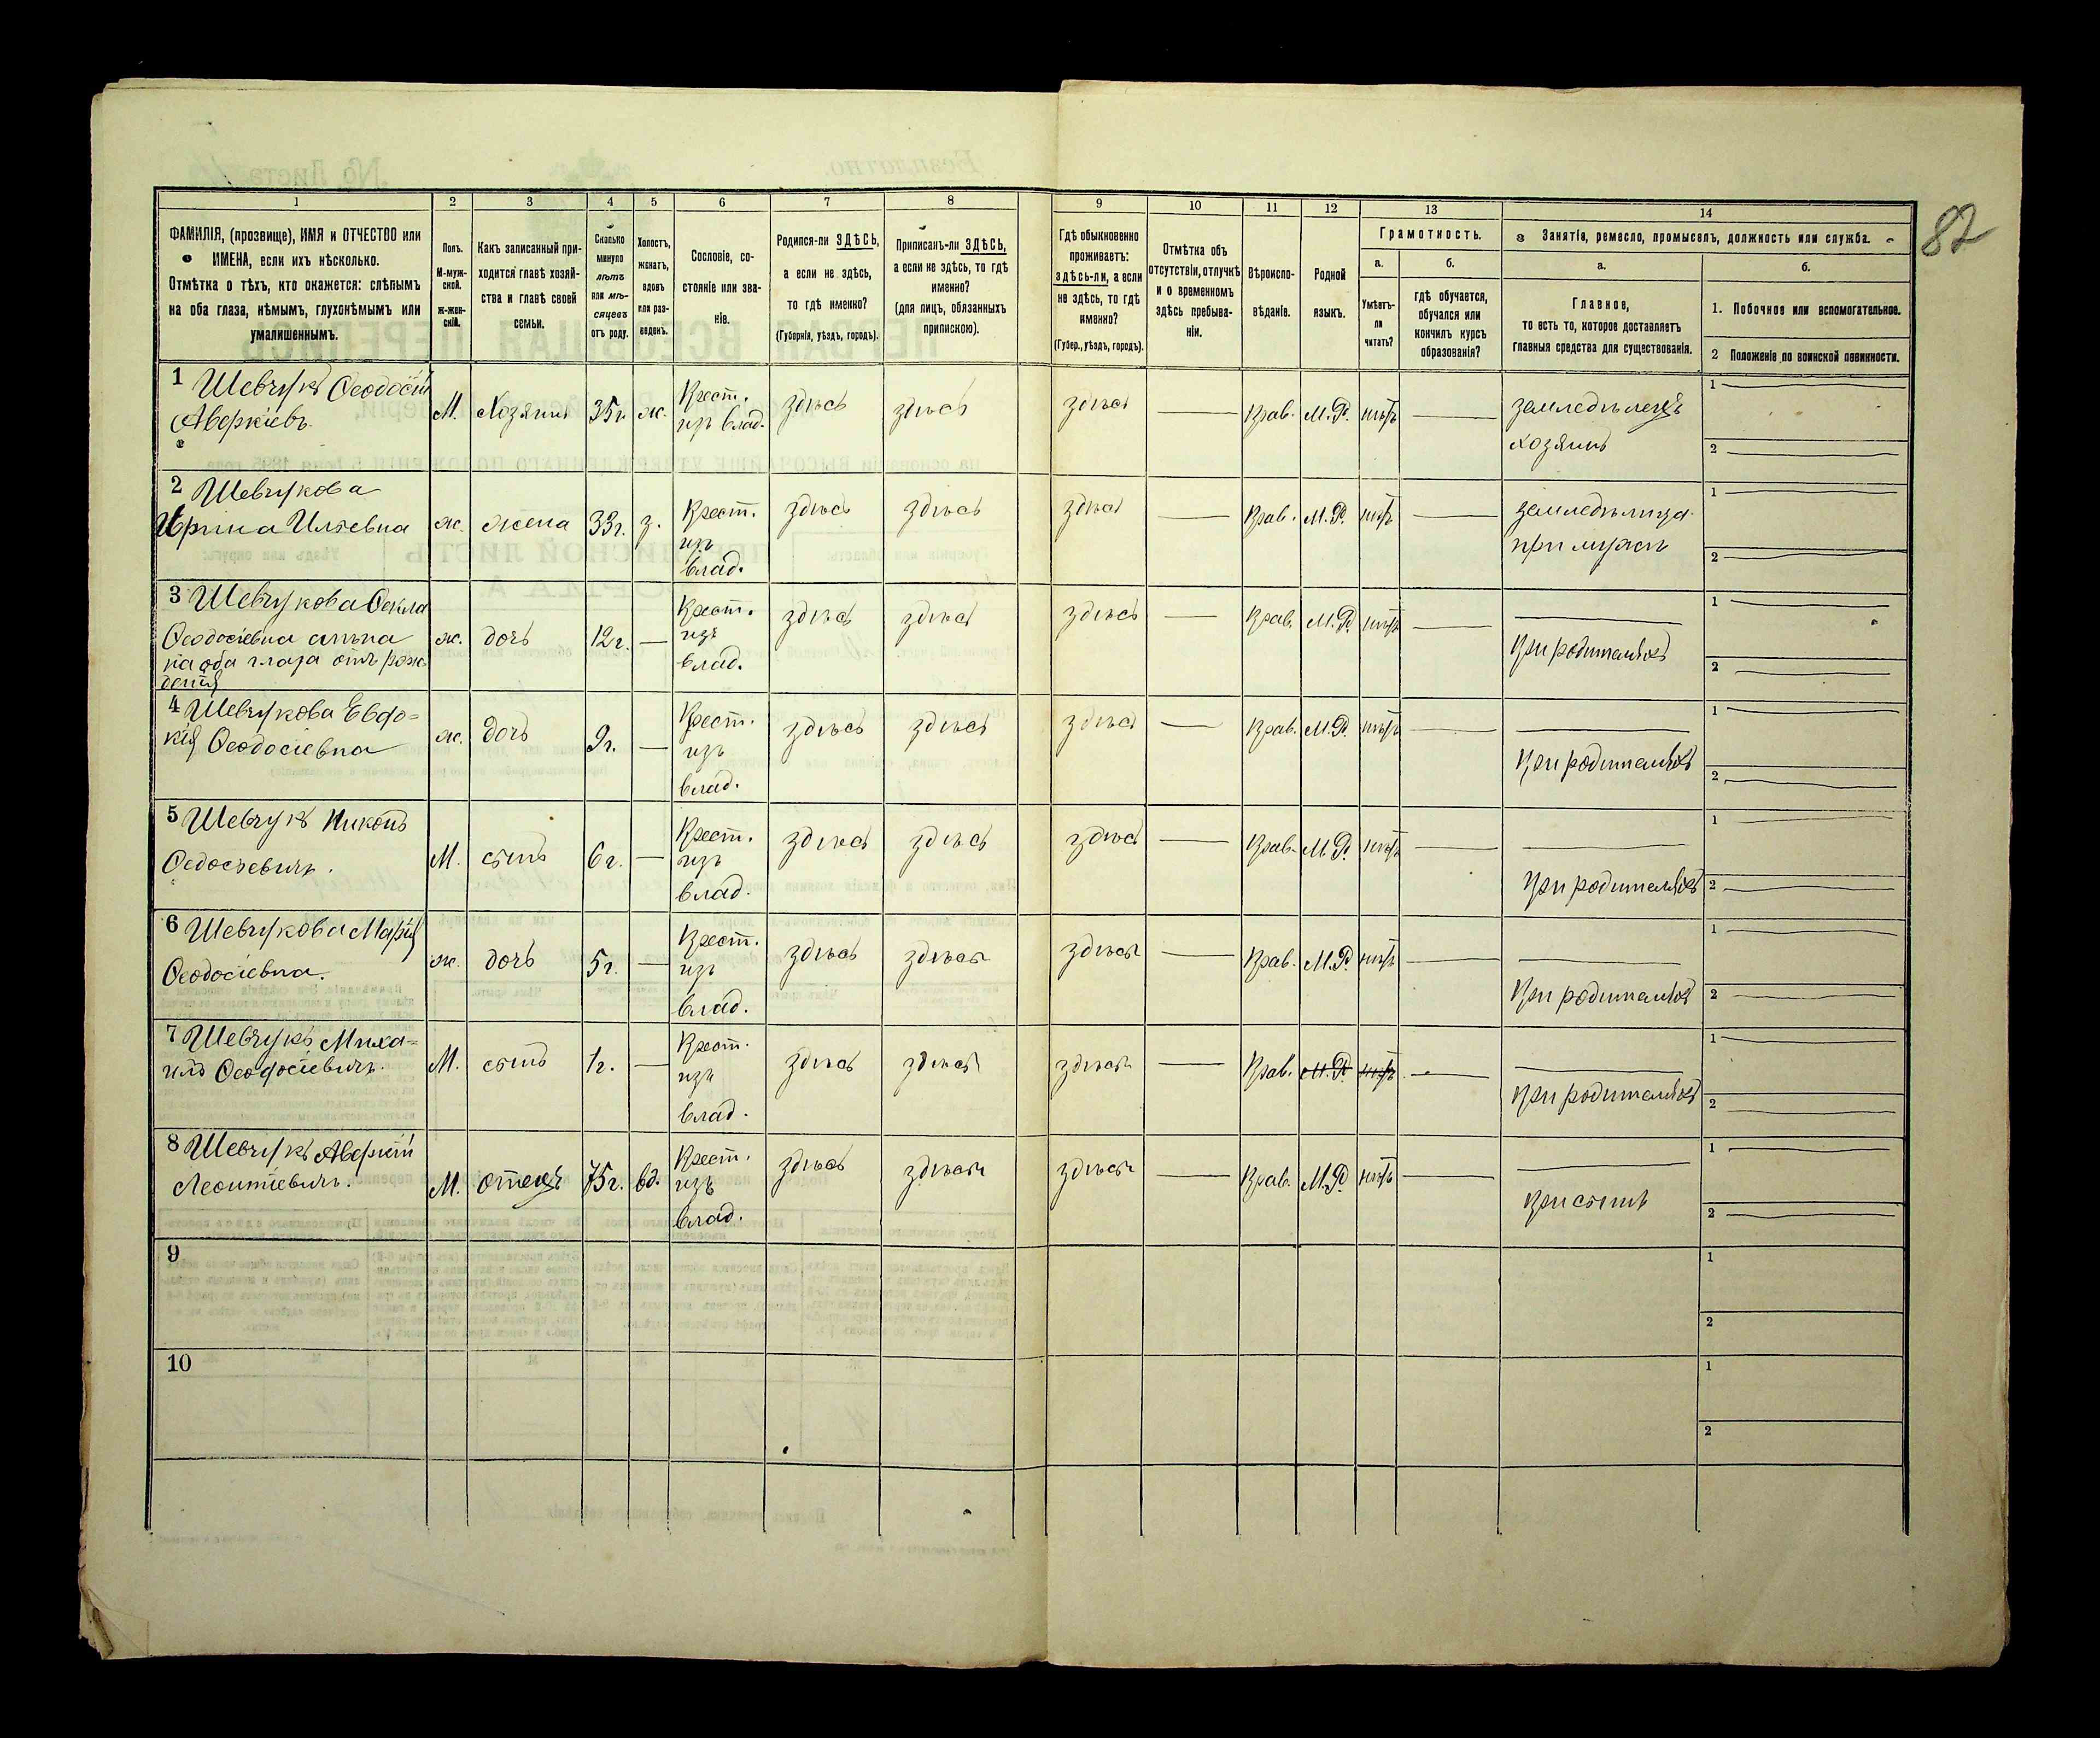 82
1 2 3 4 5 6 7 8 9 10 11 12 13 14
ФАМИЛІЯ, (прозвище), ИМЯ и ОТЧЕСТВО или
ИМЕНА, если ихъ нѣсколько.
Отмѣтка о тѣхъ, кто окажется: слѣпымъ
на оба глаза, нѣмымъ, глухонѣмымъ или
умалишеннымъ.
Полъ.
М-муж-
ской.
ж-жен-
скій.
Какъ записанный при-
ходится главѣ хозяй-
ства и главѣ своей
семьи.
Сколько
минуло
лѣтъ
или мѣ-
сяцевъ
отъ роду.
Холостъ,
женатъ,
вдовъ
или раз-
веденъ.
Сословіе, со-
стояніе или зва-
ніе.
Родился-ли ЗДѢСЬ,
а если не здѣсь,
то гдѣ именно?
(Губернія, уѣздъ, городъ).
Приписанъ-ли ЗДѢСЬ,
а если не здѣсь, то гдѣ
именно?
(для лицъ, обязанныхъ
припискою).
Гдѣ обыкновенно
проживаетъ:
здѣсь-ли, а если
не здѣсь, то гдѣ
именно?
(Губер., уѣздъ, городъ).
Отмѣтка объ
отсутствіи, отлучкѣ
и о временномъ
здѣсь пребыва-
ніи.
Вѣроиспо-
вѣданіе.
Родной
языкъ.
Грамотность.
а.
Умѣетъ-
ли
читать?
б.
гдѣ обучается,
обучался или
кончилъ курсъ
образованія?
Занятіе, ремесло, промыселъ, должность или служба.
а.
Главное,
то есть то, которое доставляетъ
главныя средства для существованія.
б.
1. Побочное или вспомогательное.
2 Положеніе по воинской повинности.
1 Шевчукъ Ѳеодосій
Аверкіевъ.
М. Хозяинъ 35г. ж. Крест. изъ влад. здѣсь здѣсь здѣсь — Прав. М.Р. нѣтъ — земледѣлецъ
хозяинъ
1 —
2 —
2 Шевчукова
Ирина Ильевна ж. жена 33г. з. Крест. изъ влад. здѣсь здѣсь здѣсь — Прав. М.Р. нѣтъ земледѣлица
при мужѣ
1 —
2 —
3 Шевчукова Ѳекла
Ѳеодосіевна слѣпа
на оба глаза отъ рож-
денія
ж. дочь 12г. — Крест. изъ влад. здѣсь здѣсь здѣсь — Прав. М.Р. нѣтъ — —
при родителяхъ
1 —
2 —
4 Шевчукова Евдо=
кія Ѳеодосіевна
ж. дочь 9г. — Крест. изъ влад. здѣсь здѣсь здѣсь — Прав. М.Р. нѣтъ — —
при родителяхъ
1 —
2 —
5 Шевчукъ Никонъ
Ѳедосіевичъ.
М. сынъ 6г. — Крест. изъ влад. здѣсь здѣсь здѣсь — Прав. М.Р. нѣтъ — —
при родителяхъ
1 —
2 —
6 Шевчукова Марія
Ѳеодосіевна.
ж. дочь 5г. — Крест. изъ влад. здѣсь здѣсь здѣсь — Прав. М.Р. нѣтъ — —
при родителяхъ
1 —
2 —
7 Шевчукъ Миха=
илъ Ѳеодосіевичъ.
М. сынъ 1г. — Крест. изъ влад. здѣсь здѣсь здѣсь — Прав. М.Р. нѣтъ — —
при родителяхъ
1 —
2 —
8 Шевчукъ Аверкій
Леонтіевичъ.
М. отецъ 75г. вд. Крест. изъ влад. здѣсь здѣсь здѣсь — Прав. М.Р. нѣтъ — —
при сынѣ
1 —
2 —
9
1
2
10
1
2